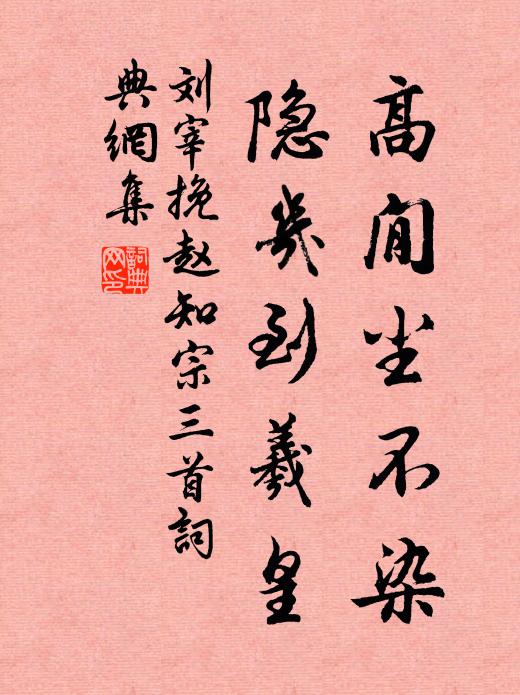 高闲尘不染
隐几到羲皇
刘宰挽赵知宗三首詞
典網集
詞典
网印